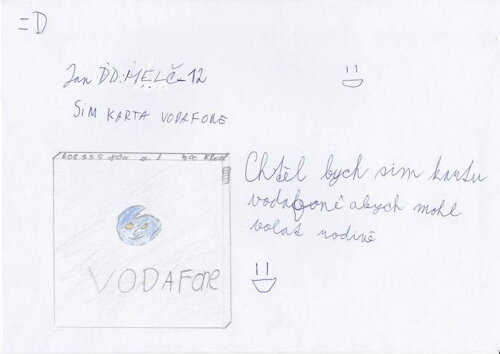 =D
Jan DD:MELČ-12
SIM KARTA VODAFONE
VODAFONE
Chtěl bych sim kartu
vodafone abych mohl
volat rodině